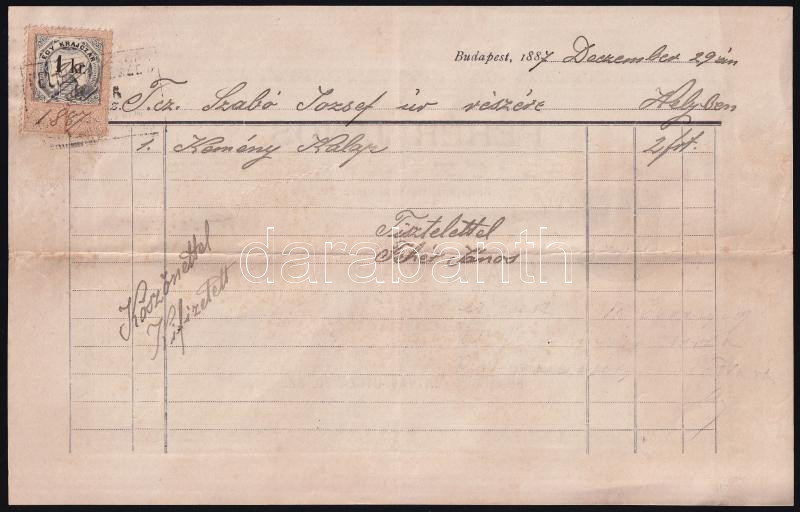 EGY KRAJCZÁR
1 kr.
1887
Budapest, 1887 Deczember 29 én
T.cz. Szabó Jozsef úr részére Helyben
1. Kemény Kalap 2 frt.
Tisztelettel
Fehér János
Köszönettel
Kifizetett
darabanth